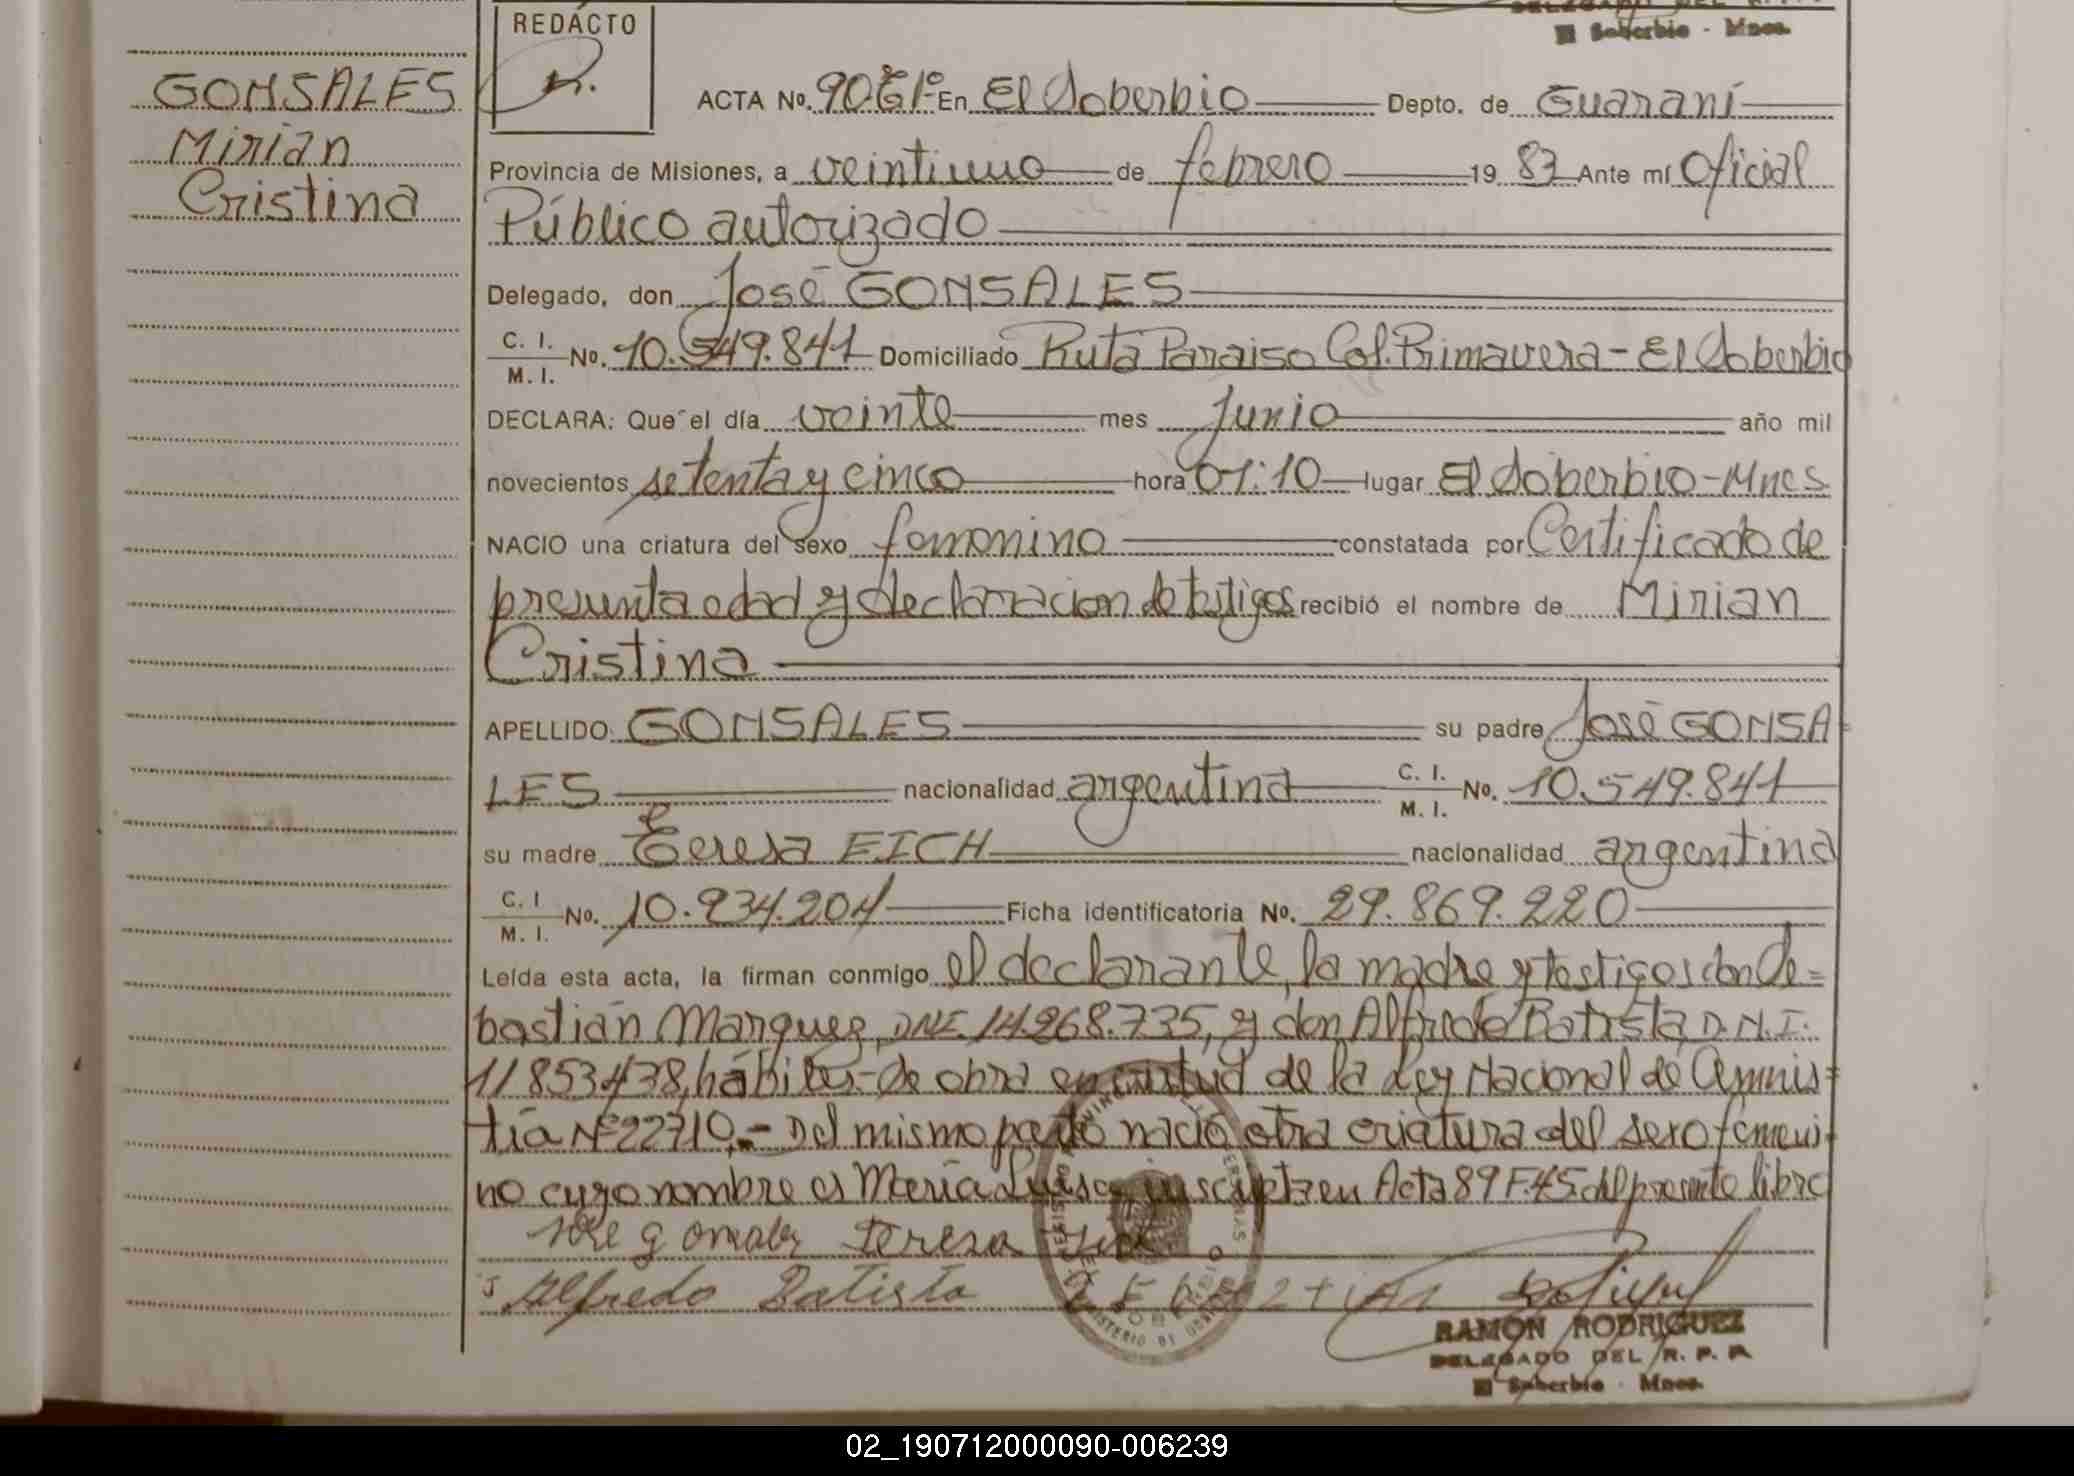 DELEGADO DEL R. P. P.
El Soberbio - Mnes.
REDACTO
GONSALES
Mirian
Cristina
ACTA No. 90 T 1º En El Soberbio Depto. de Guaraní
Provincia de Misiones, a veintiuno de febrero 19 83 Ante mí Oficial
Público autorizado
Delegado, don José GONSALES
C. I.
M. I. No. 10.549.841 Domiciliado Ruta Paraiso Col. Primavera - El Soberbio
DECLARA: Que el día veinte mes Junio año mil
novecientos setenta y cinco hora 01:10 lugar El Soberbio - Mnes
NACIO una criatura del sexo femenino constatada por Certificado de
presunta edad y declaracion de testigos recibió el nombre de Mirian
Cristina
APELLIDO GONSALES su padre José GONSA
LES nacionalidad argentina C. I. M. I. No. 10.549.841
su madre Teresa EICH nacionalidad argentina
C. I M. I. No. 10.934.204 Ficha identificatoria No. 29.869.220
Leída esta acta, la firman conmigo el declarante, la madre y testigos don Se=
bastián Marquez, DNI. 14.268.735, y don Alfredo Batista, D.N.I.
11853438, hábiles.- Se obra en virtud de la Ley Nacional de Amnis=
tía Nº 22710.- Del mismo parto nació otra criatura del sexo femeni-
no cuyo nombre es María Luisa, inscripta en Acta 89 F.45 del presente libro
Jose gonsales Teresa
Alfredo Batista
RAMÓN RODRIGUEZ
DELEGADO DEL R. P. P.
El Soberbio - Mnes.
02_190712000090-006239